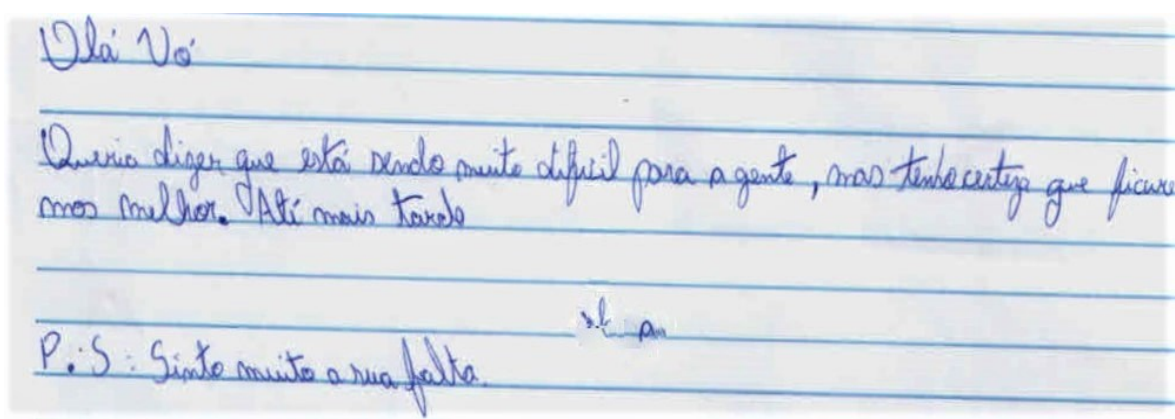 Olá Vó
Queria dizer que está sendo muito difícil para a gente, mas tenho certeza que ficare
mos melhor. Até mais tarde
P.S: Sinto muito a sua falta.